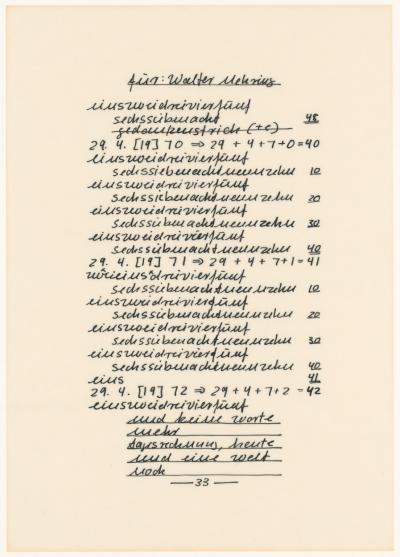 für: Walter Mehring
einszweidreivierfünf
sechssiebenacht 48
gedankenstrich
29. 4. [19] 70 ⇒ 29 + 4 + 7 + 0 = 40
einszweidreivierfünf
sechssiebenachtneunzehn 10
einszweidreivierfünf
sechssiebenachtneunzehn 20
einszweidreivierfünf
sechssiebenachtneunzehn 30
einszweidreivierfünf
sechssiebenachtneunzehn 40
29. 4. [19] 71 ⇒ 29 + 4 + 7 + 1 = 41
sechssiebenachtneunzehn 10
einszweidreivierfünf
sechssiebenachtneunzehn 20
einszweidreivierfünf
sechssiebenachtneunzehn 30
einszweidreivierfünf
sechssiebenachtneunzehn 40
eins 41
29. 4. [19] 72 ⇒ 29 + 4 + 7 + 2 = 42
einszweidreivierfünf
und keine worte
mehr
tagesrechnung, heute
und eine welt
noch
— 33 —